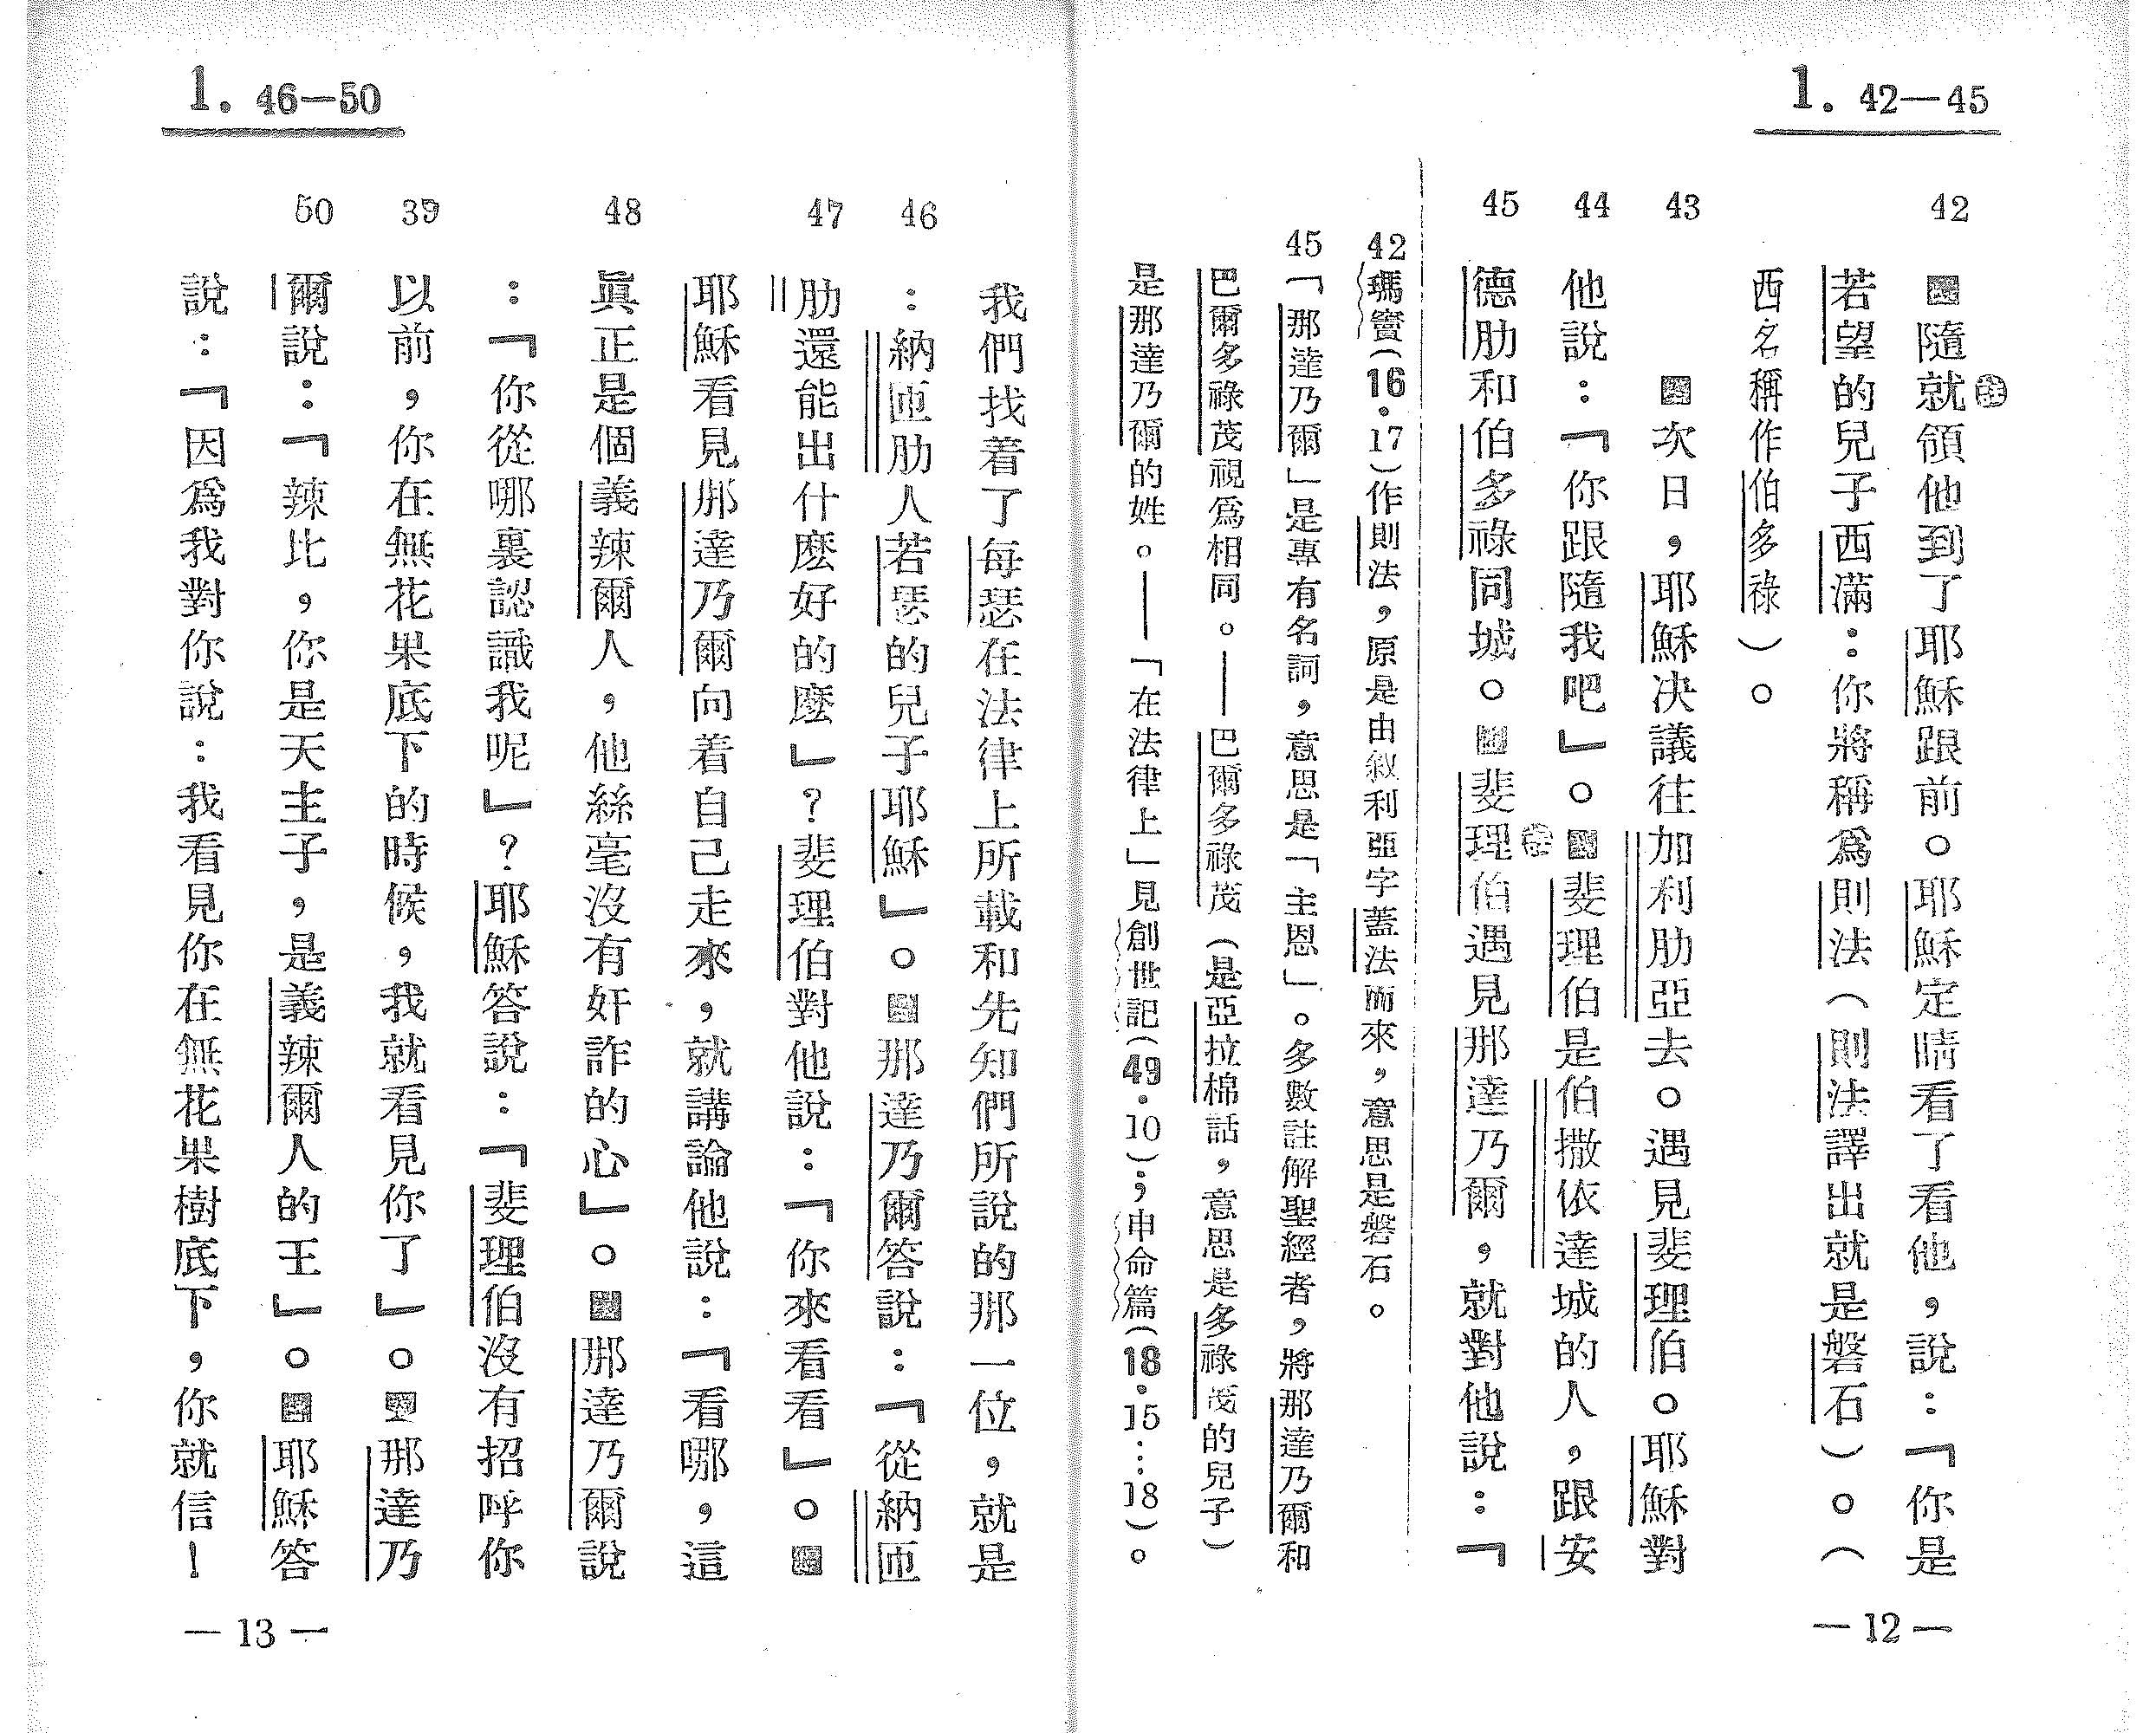 1. 42—45
42
隨就領他到了耶穌跟前。耶穌定睛看了看他，說：「你是
若望的兒子西滿：你將稱爲則法（則法譯出就是磐石）。（
西名稱作伯多祿）。
43
次日，耶穌决議往加利肋亞去。遇見斐理伯。耶穌對
44
他說：「你跟隨我吧」。斐理伯是伯撒依達城的人，跟安
45
德肋和伯多祿同城。斐理伯遇見那達乃爾，就對他說：「
42瑪竇（16·17）作則法，原是由敘利亞字蓋法而來，意思是磐石。
45「那達乃爾」是專有名詞，意思是「主恩」。多數註解聖經者，將那達乃爾和
巴爾多祿茂視爲相同。——巴爾多祿茂（是亞拉棉話，意思是多祿茂的兒子）
是那達乃爾的姓。——「在法律上」見創世記（49·10）；申命篇（18·15…18）。
—12—
1. 46—50
我們找着了每瑟在法律上所載和先知們所說的那一位，就是
46
：納匝肋人若瑟的兒子耶穌」。那達乃爾答說：「從納匝
47
肋還能出什麼好的麼」？斐理伯對他說：「你來看看」。
耶穌看見那達乃爾向着自己走來，就講論他說：「看哪，這
48
眞正是個義辣爾人，他絲毫沒有奸詐的心」。那達乃爾說
：「你從哪裏認識我呢」？耶穌答說：「斐理伯沒有招呼你
39
以前，你在無花果底下的時候，我就看見你了」。那達乃
50
爾說：「辣比，你是天主子，是義辣爾人的王」。耶穌答
說：「因爲我對你說：我看見你在無花果樹底下，你就信！
—13—